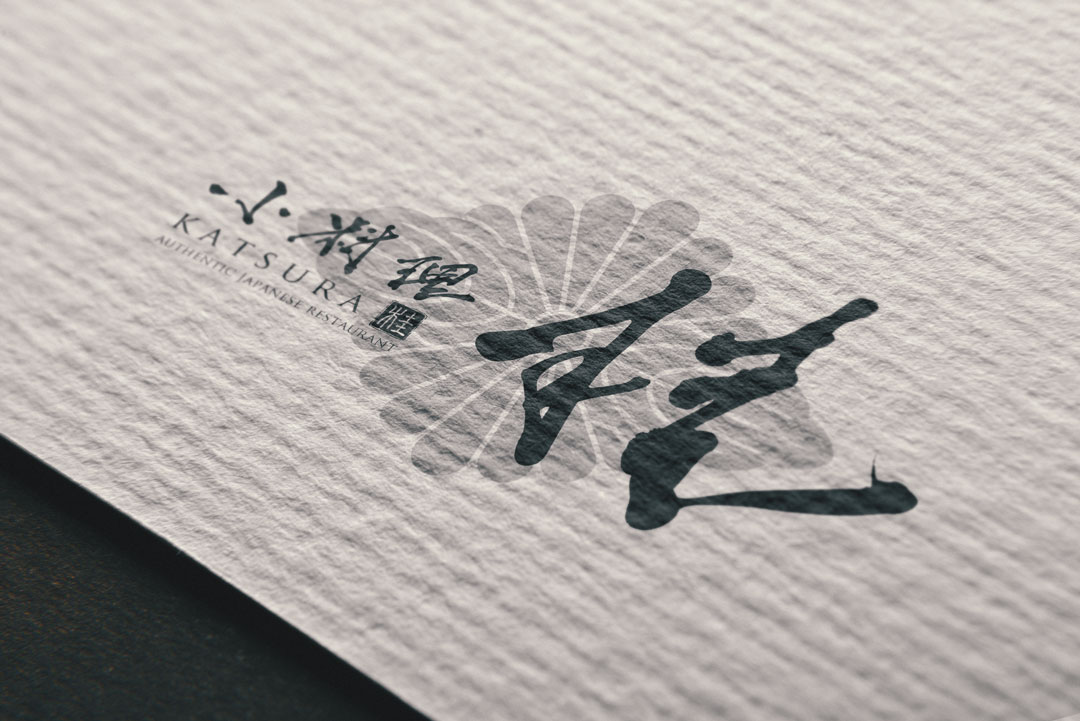 小料理
KATSURA
AUTHENTIC JAPANESE RESTAURANT
桂
桂